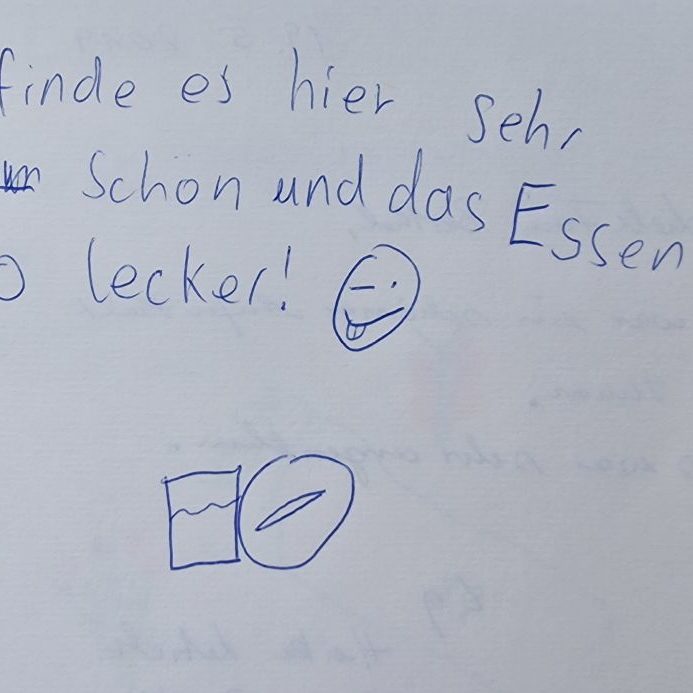 finde es hier sehr
schön und das Essen
lecker!